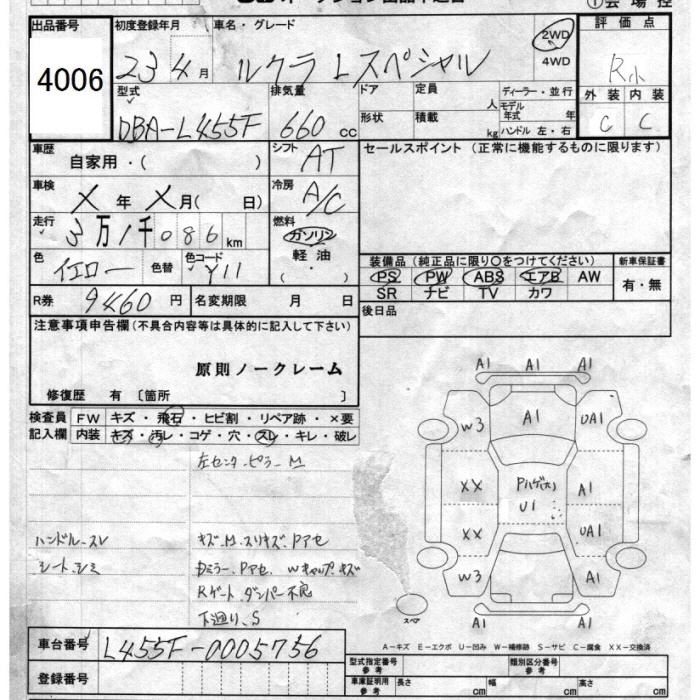 出品番号 初度登録年月 車名・グレード 2WD 評価点
4006 23 4月 ルクラ Lスペシャル 4WD R小
型式 排気量 ドア 定員 人 ディーラー・並行 外装 内装
DBA-L455F 660 cc 形状 積載 kg モデル年式 年 ハンドル 左・右 C C
車歴 自家用・( ) シフト AT セールスポイント(正常に機能するものに限ります)
車検 X 年 X 月( 日) 冷房 A/C
走行 3万1千086km 燃料 ガソリン
色 イエロー 色替 色コード Y11 軽油 ( ・ ) 装備品(純正品に限り○をつけてください) 新車保証書
PS PW ABS エアB AW 有・無
R券 9460円 名変期限 月 日 SR ナビ TV カワ
注意事項申告欄(不具合内容等は具体的に記入して下さい) 後日品
原則ノークレーム
修復歴 有 〔箇所 〕
検査員 FW キズ・飛石・ヒビ割・リペア跡・×要
記入欄 内装 キズ・汚レ・コゲ・穴・スレ・キレ・破レ
左センターピラーM
ハンドルスレ キズ.M.スリキズ.Pアセ
シートシミ Dミラー.Pアセ.Wキャップ.キズ
Rゲートダンパー不良
下廻り.S
A1 A1 A1
W3 A1 UA1
XX Pハゲ(大) A1
U1
XX UA1
W3 A1
スペア A1 A1 A1
A－キズ E－エクボ U－凹み W－補修跡 S－サビ C－腐食 XX－交換済
車台番号 L455F-0005756
登録番号 型式指定番号 参考 類別区分番号 参考
車庫証明用 参考 長さ cm 幅 cm 高さ cm